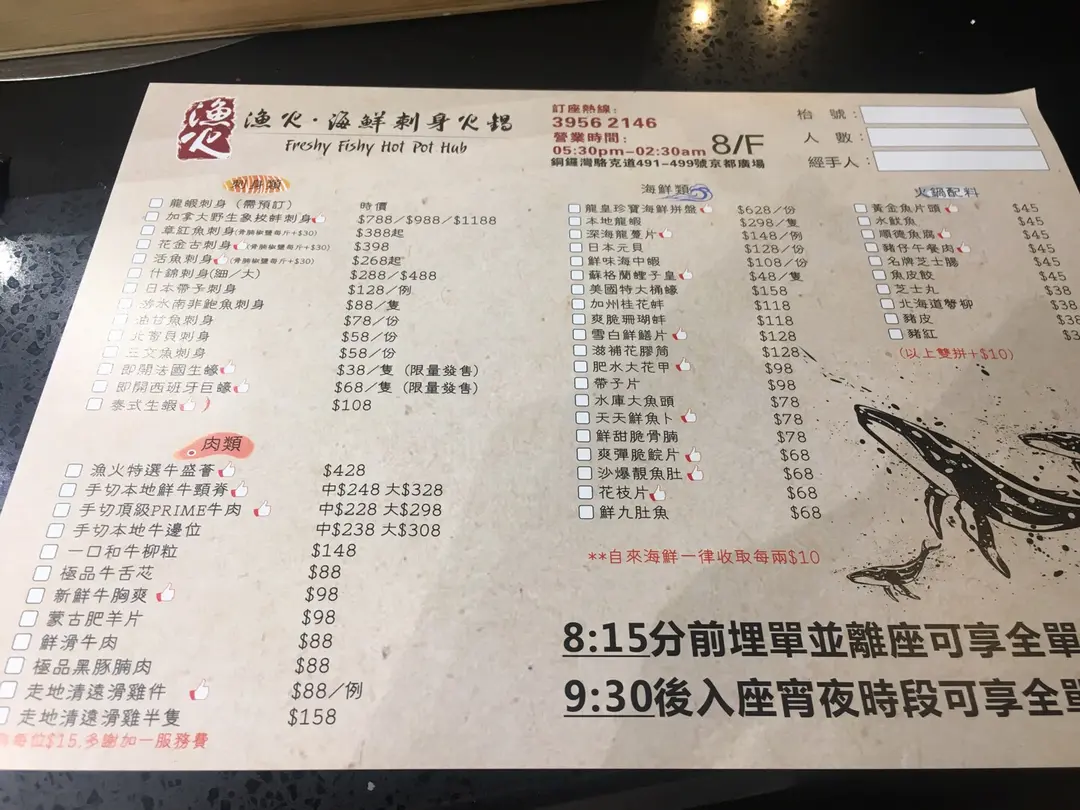 漁火
漁火·海鮮刺身火鍋
Freshy Fishy Hot Pot Hub
訂座熱線:
3956 2146
營業時間:
05:30pm-02:30am 8/F
銅鑼灣駱克道491-499號京都廣場
枱 號:
人 數:
經手人:
刺身類
龍蝦刺身(需預訂) 時價
加拿大野生象拔蚌刺身 $788/$988/$1188
章紅魚刺身(骨腩椒鹽每斤+$30) $388起
花金古刺身(骨腩椒鹽每斤+$30) $398
活魚刺身(骨腩椒鹽每斤+$30) $268起
什錦刺身(細/大) $288/$488
日本帶子刺身 $128/例
南非鮑魚刺身 $88/隻
油甘魚刺身 $78/份
北寄貝刺身 $58/份
三文魚刺身 $58/份
即開法國生蠔 $38/隻(限量發售)
即開西班牙巨蠔 $68/隻(限量發售)
泰式生蝦 $108
肉類
漁火特選牛盛薈 $428
手切本地鮮牛頸脊 中$248 大$328
手切頂級PRIME牛肉 中$228 大$298
手切本地牛邊位 中$238 大$308
一口和牛柳粒 $148
極品牛舌芯 $88
新鮮牛胸爽 $98
蒙古肥羊片 $98
鮮滑牛肉 $88
極品黑豚腩肉 $88
走地清遠滑雞件 $88/例
走地清遠滑雞半隻 $158
每位$15,多謝加一服務費
海鮮類
龍皇珍寶海鮮拼盤 $628/份
本地龍蝦 $298/隻
深海龍躉片 $148/例
日本元貝 $128/份
鮮味海中蝦 $108/份
蘇格蘭蟶子皇 $48/隻
美國特大桶蠔 $158
加州桂花蚌 $118
爽脆珊瑚蚌 $118
雪白鮮鱔片 $128
滋補花膠筒 $128
肥水大花甲 $98
帶子片 $98
水庫大魚頭 $78
天天鮮魚卜 $78
鮮甜脆骨腩 $78
爽彈脆鯇片 $68
沙爆靚魚肚 $68
花枝片 $68
鮮九肚魚 $68
**自來海鮮一律收取每兩$10
火鍋配料
黃金魚片頭 $45
水魷魚 $45
順德魚腐 $45
豬仔午餐肉 $45
名牌芝士腸 $45
魚皮餃 $45
芝士丸 $38
北海道帶柳 $38
豬皮 $38
豬紅
(以上雙拼+$10)
8:15分前埋單並離座可享全單
9:30後入座宵夜時段可享全單